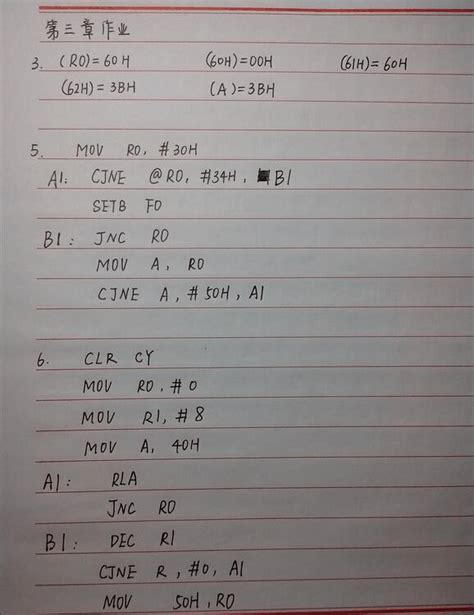 第三章作业
3. (R0)=60H (60H)=00H (61H)=60H
(62H)=3BH (A)=3BH
5. MOV R0, #30H
A1: CJNE @R0, #34H, B1
SETB F0
B1: JNC R0
MOV A, R0
CJNE A, #50H, A1
6. CLR CY
MOV R0, #0
MOV R1, #8
MOV A, 40H
A1: RLA
JNC R0
B1: DEC R1
CJNE R, #0, A1
MOV 50H, R0